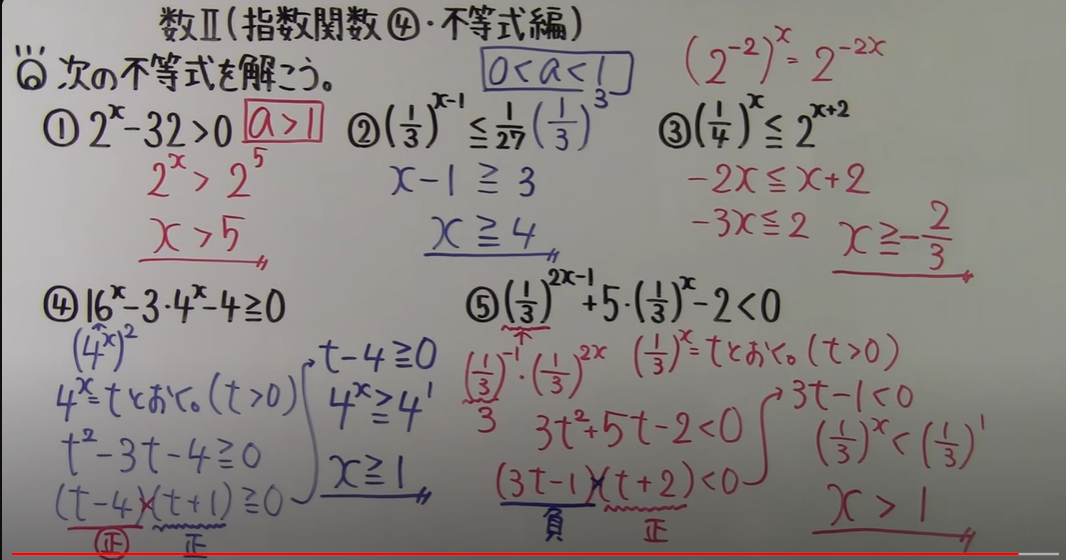 数Ⅱ(指数関数④・不等式編)
次の不等式を解こう。
0<a<1
(2⁻²)ˣ=2⁻²ˣ
①2ˣ-32>0 a>1
2ˣ>2⁵
x>5
②(1/3)ˣ⁻¹≦1/27 (1/3)³
x-1≧3
x≧4
③(1/4)ˣ≦2ˣ⁺²
-2x≦x+2
-3x≦2
x≧-2/3
④16ˣ-3・4ˣ-4≧0
(4ˣ)²
4ˣ=tとおく。(t>0)
t²-3t-4≧0
(t-4)(t+1)≧0
正 正
t-4≧0
4ˣ≧4¹
x≧1
⑤(1/3)²ˣ⁻¹+5・(1/3)ˣ-2<0
(1/3)⁻¹・(1/3)²ˣ
3
(1/3)ˣ=tとおく。(t>0)
3t²+5t-2<0
(3t-1)(t+2)<0
負 正
3t-1<0
(1/3)ˣ<(1/3)¹
x>1